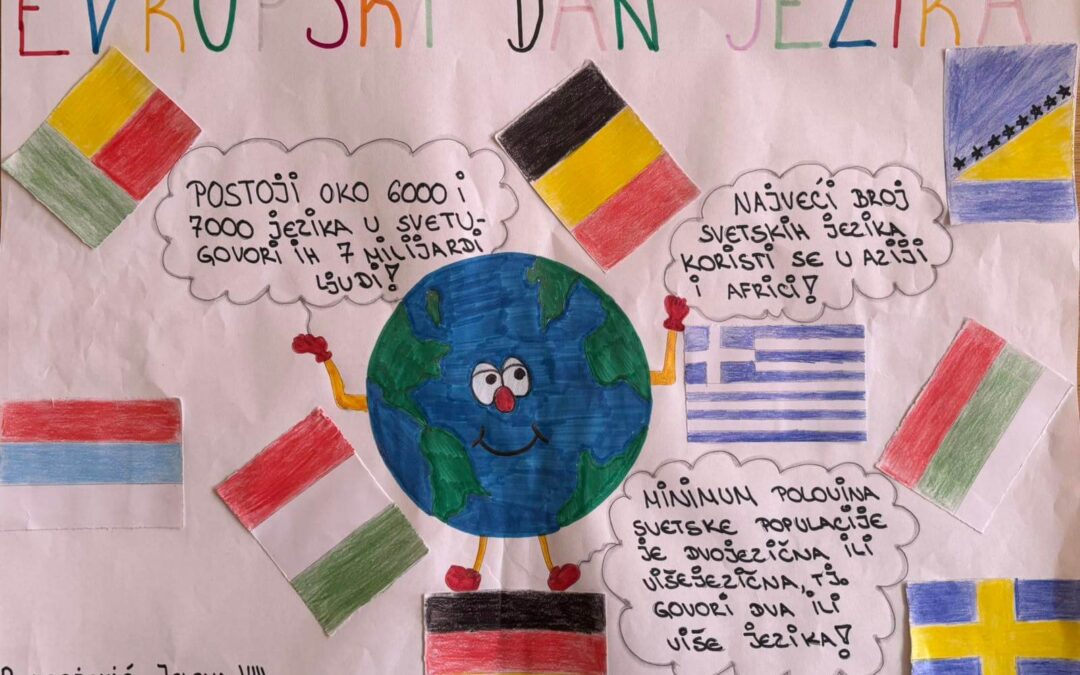 EVROPSKI DAN JEZIKA
POSTOJI OKO 6000 i
7000 JEZIKA U SVETU-
GOVORI IH 7 MILIJARDI
LJUDI!
NAJVEĆI BROJ
SVETSKIH JEZIKA
KORISTI SE U AZIJI
I AFRICI!
MINIMUM POLOVINA
SVETSKE POPULACIJE
JE DVOJEZIČNA ILI
VIŠEJEZIČNA, TJ.
GOVORI DVA ILI
VIŠE JEZIKA!